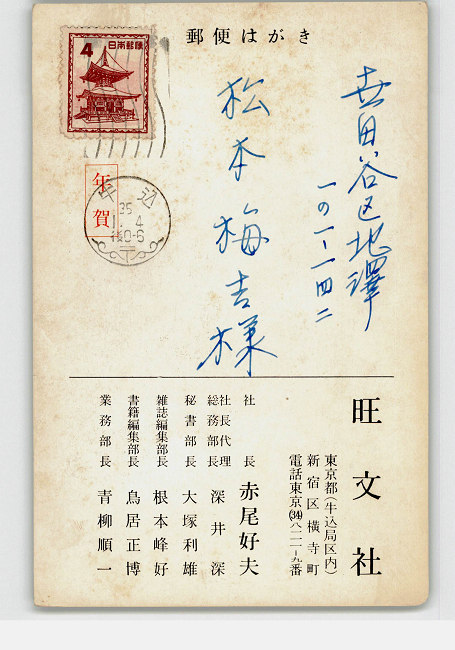 郵便はがき
4 日本郵便
年賀
牛込
35
1. 4
後0-6
世田谷区北澤
松本梅吉様
旺文社
東京都(牛込局区内)
新宿区横寺町
電話東京(34)八二一一〜九番
社長 赤尾好夫
社長代理
総務部長 深井深
秘書部長 大塚利雄
雑誌編集部長 根本峰好
書籍編集部長 鳥居正博
業務部長 青柳順一